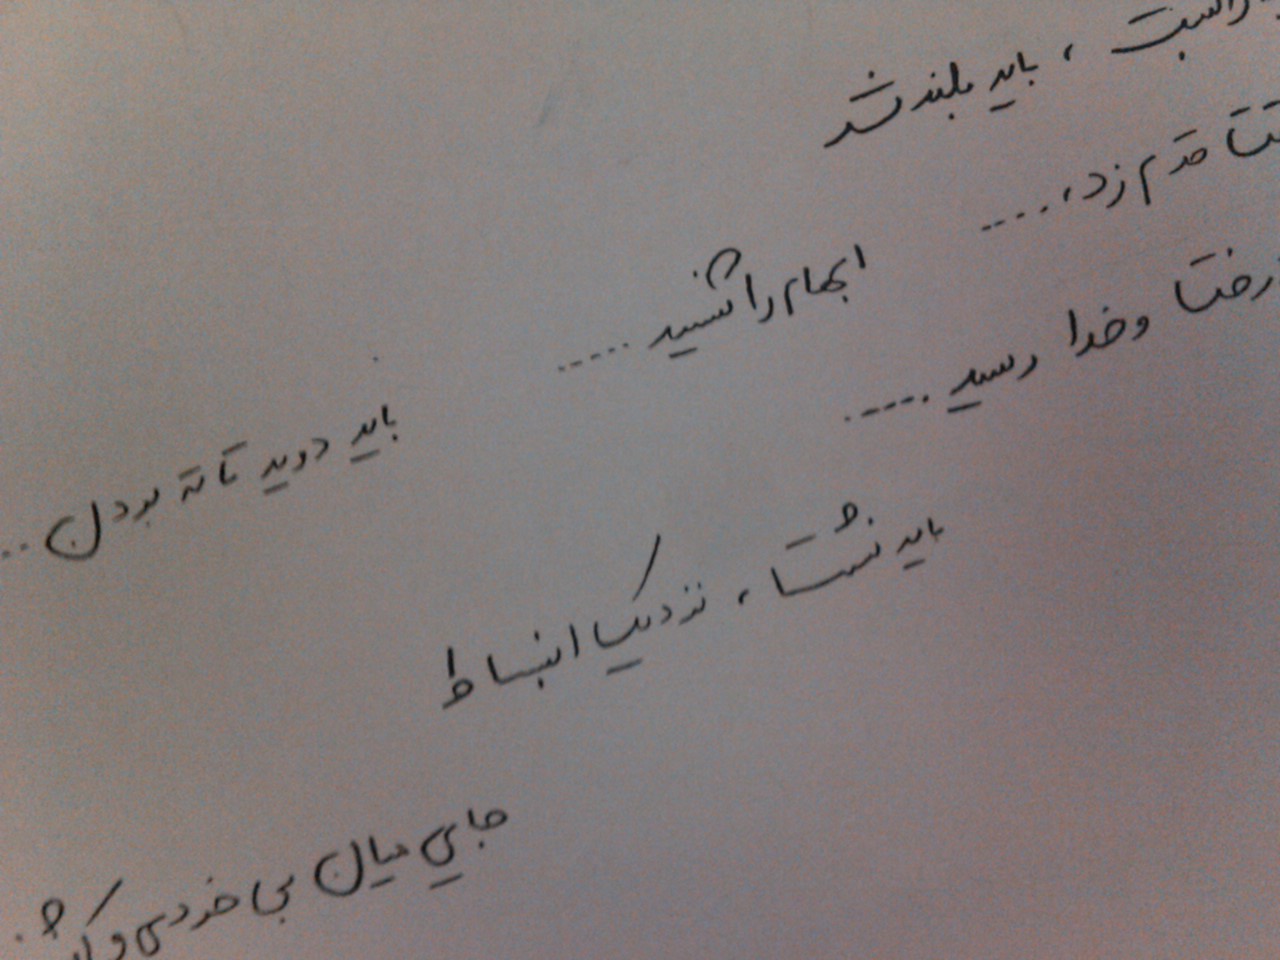 ، باید بلند شد
قدم زد، ....
ابهام را شنید .....
و خدا رسید .....
باید دوید تا ته بودن ..
باید نشست، نزدیک انبساط
جایی میان بی خودی و